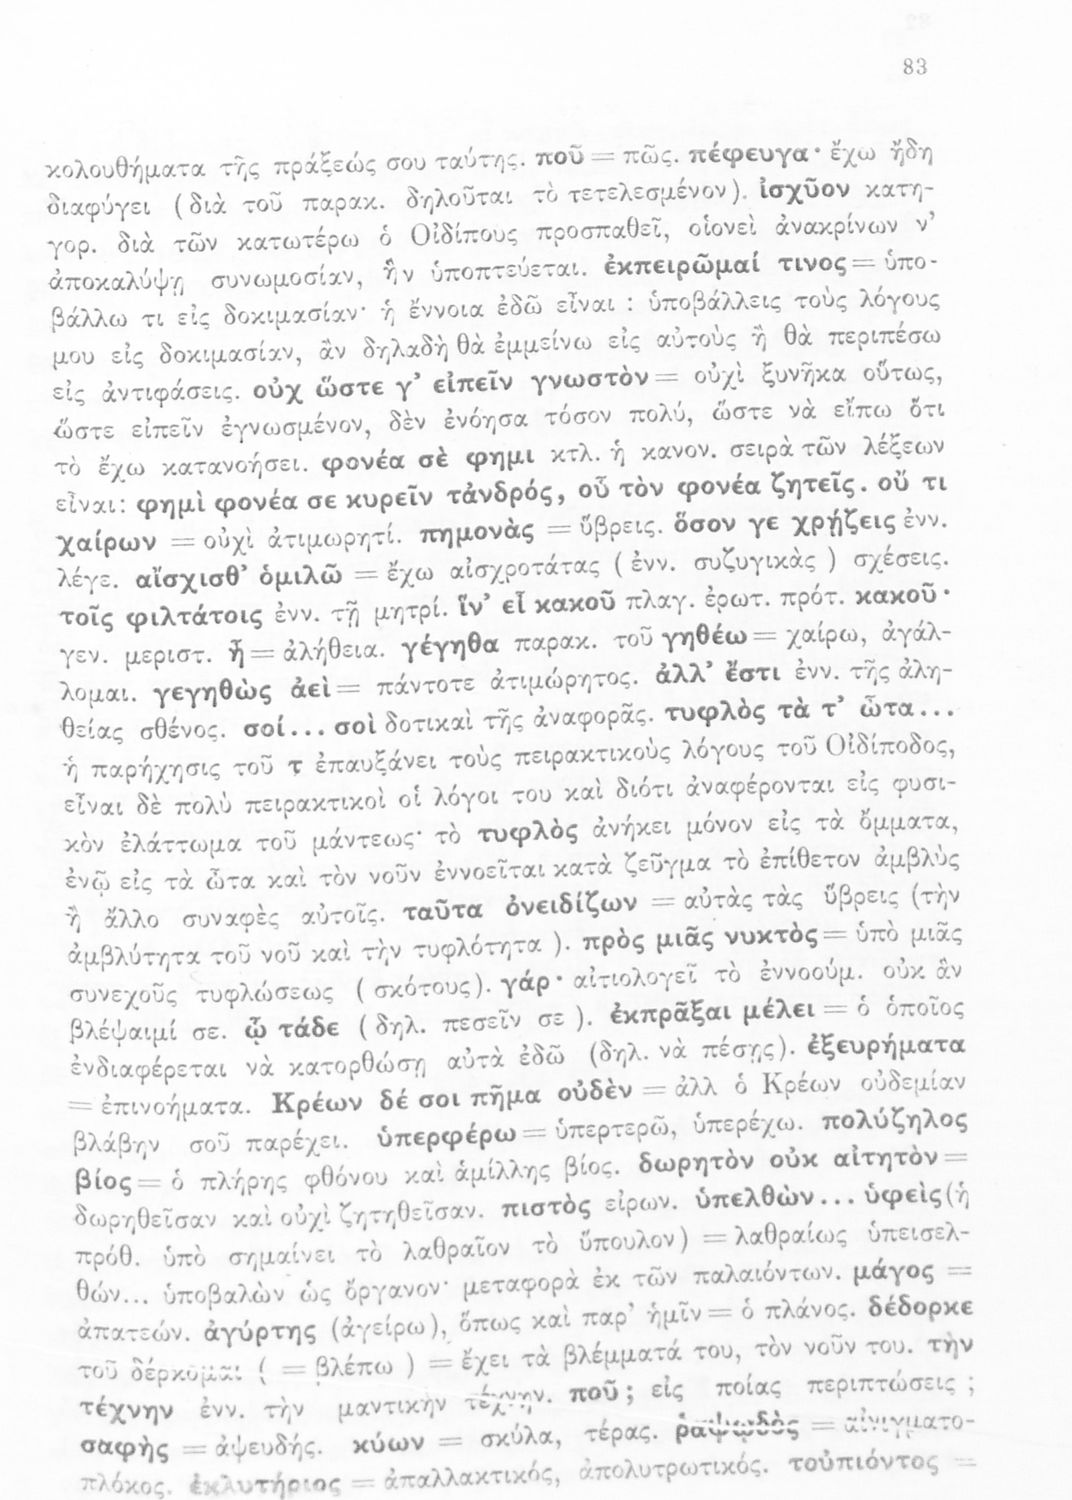 83
κολουθήματα τῆς πράξεώς σου ταύτης. ποῦ = πῶς. πέφευγα· ἔχω ἤδη
διαφύγει (διὰ τοῦ παρακ. δηλοῦται τὸ τετελεσμένον). ἰσχῦον κατη-
γορ. διὰ τῶν κατωτέρω ὁ Οἰδίπους προσπαθεῖ, οἱονεὶ ἀνακρίνων ν'
ἀποκαλύψῃ συνωμοσίαν, ἣν ὑποπτεύεται. ἐκπειρῶμαί τινος = ὑπο-
βάλλω τι εἰς δοκιμασίαν· ἡ ἔννοια ἐδῶ εἶναι : ὑποβάλλεις τοὺς λόγους
μου εἰς δοκιμασίαν, ἂν δηλαδὴ θὰ ἐμμείνω εἰς αὐτοὺς ἢ θὰ περιπέσω
εἰς ἀντιφάσεις. οὐχ ὥστε γ' εἰπεῖν γνωστὸν = οὐχὶ ξυνῆκα οὕτως,
ὥστε εἰπεῖν ἐγνωσμένον, δὲν ἐνόησα τόσον πολύ, ὥστε νὰ εἴπω ὅτι
τὸ ἔχω κατανοήσει. φονέα σὲ φημι κτλ. ἡ κανον. σειρὰ τῶν λέξεων
εἶναι: φημὶ φονέα σε κυρεῖν τἀνδρός, οὗ τὸν φονέα ζητεῖς. οὔ τι
χαίρων = οὐχὶ ἀτιμωρητί. πημονὰς = ὕβρεις. ὅσον γε χρῄζεις ἐνν.
λέγε. αἴσχισθ' ὁμιλῶ = ἔχω αἰσχροτάτας ( ἐνν. συζυγικὰς ) σχέσεις.
τοῖς φιλτάτοις ἐνν. τῇ μητρί. ἵν' εἶ κακοῦ πλαγ. ἐρωτ. πρότ. κακοῦ·
γεν. μεριστ. ἦ = ἀλήθεια. γέγηθα παρακ. τοῦ γηθέω = χαίρω, ἀγάλ-
λομαι. γεγηθὼς ἀεὶ = πάντοτε ἀτιμώρητος. ἀλλ' ἔστι ἐνν. τῆς ἀλη-
θείας σθένος. σοί... σοὶ δοτικαὶ τῆς ἀναφορᾶς. τυφλὸς τὰ τ' ὦτα...
ἡ παρήχησις τοῦ τ ἐπαυξάνει τοὺς πειρακτικοὺς λόγους τοῦ Οἰδίποδος,
εἶναι δὲ πολὺ πειρακτικοὶ οἱ λόγοι του καὶ διότι ἀναφέρονται εἰς φυσι-
κὸν ἐλάττωμα τοῦ μάντεως· τὸ τυφλὸς ἀνήκει μόνον εἰς τὰ ὄμματα,
ἐνῷ εἰς τὰ ὦτα καὶ τὸν νοῦν ἐννοεῖται κατὰ ζεῦγμα τὸ ἐπίθετον ἀμβλὺς
ἢ ἄλλο συναφὲς αὐτοῖς. ταῦτα ὀνειδίζων = αὐτὰς τὰς ὕβρεις (τὴν
ἀμβλύτητα τοῦ νοῦ καὶ τὴν τυφλότητα ). πρὸς μιᾶς νυκτὸς = ὑπὸ μιᾶς
συνεχοῦς τυφλώσεως ( σκότους). γάρ· αἰτιολογεῖ τὸ ἐννοούμ. οὐκ ἂν
βλέψαιμί σε. ᾧ τάδε ( δηλ. πεσεῖν σε ). ἐκπρᾶξαι μέλει = ὁ ὁποῖος
ἐνδιαφέρεται νὰ κατορθώσῃ αὐτὰ ἐδῶ (δηλ. νὰ πέσῃς). ἐξευρήματα
= ἐπινοήματα. Κρέων δέ σοι πῆμα οὐδὲν = ἀλλ ὁ Κρέων οὐδεμίαν
βλάβην σοῦ παρέχει. ὑπερφέρω = ὑπερτερῶ, ὑπερέχω. πολύζηλος
βίος = ὁ πλήρης φθόνου καὶ ἁμίλλης βίος. δωρητὸν οὐκ αἰτητὸν =
δωρηθεῖσαν καὶ οὐχὶ ζητηθεῖσαν. πιστὸς εἰρων. ὑπελθὼν... ὑφεὶς (ἡ
πρόθ. ὑπὸ σημαίνει τὸ λαθραῖον τὸ ὕπουλον) = λαθραίως ὑπεισελ-
θών... ὑποβαλὼν ὡς ὄργανον· μεταφορὰ ἐκ τῶν παλαιόντων. μάγος =
ἀπατεών. ἀγύρτης (ἀγείρω), ὅπως καὶ παρ' ἡμῖν = ὁ πλάνος. δέδορκε
τοῦ δέρκομαι ( = βλέπω ) = ἔχει τὰ βλέμματά του, τὸν νοῦν του. τὴν
τέχνην ἐνν. τὴν μαντικὴν τέχνην. ποῦ ; εἰς ποίας περιπτώσεις ;
σαφὴς = ἀψευδής. κύων = σκύλα, τέρας. ῥαψῳδὸς = αἰνιγματο-
πλόκος. ἐκλυτήριος = ἀπαλλακτικός, ἀπολυτρωτικός. τοὐπιόντος =